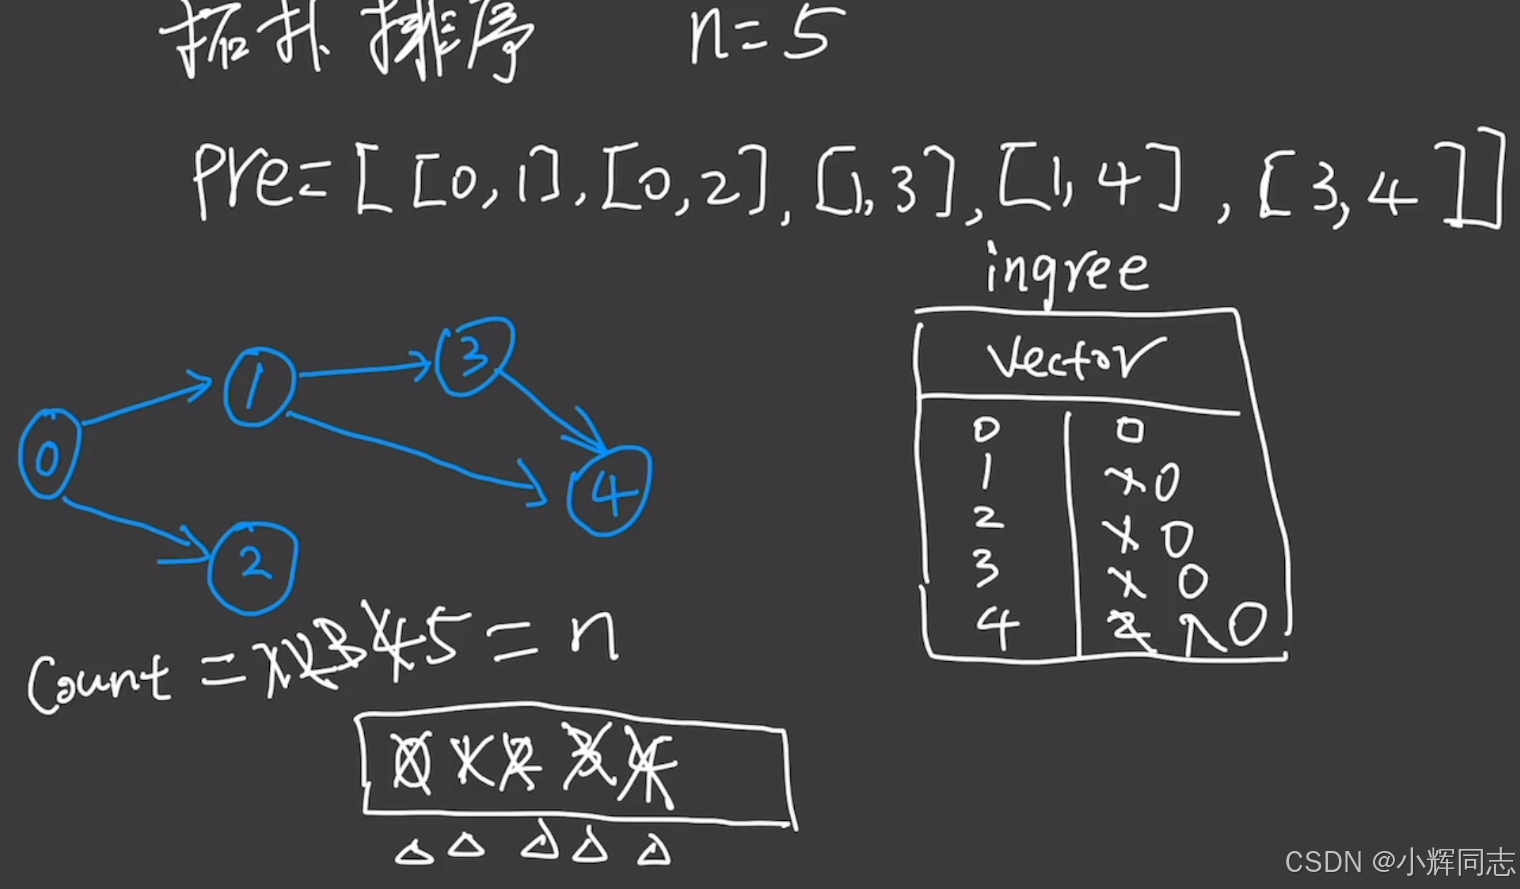 拓扑排序 n=5
pre=[[0,1],[0,2],[1,3],[1,4],[3,4]]
ingree
vector
0 0
1 1 0
2 1 0
3 1 0
4 2 1 0
0
1
3
4
2
Count = 1 2 3 4 5 = n
0 1 2 3 4
CSDN @小辉同志